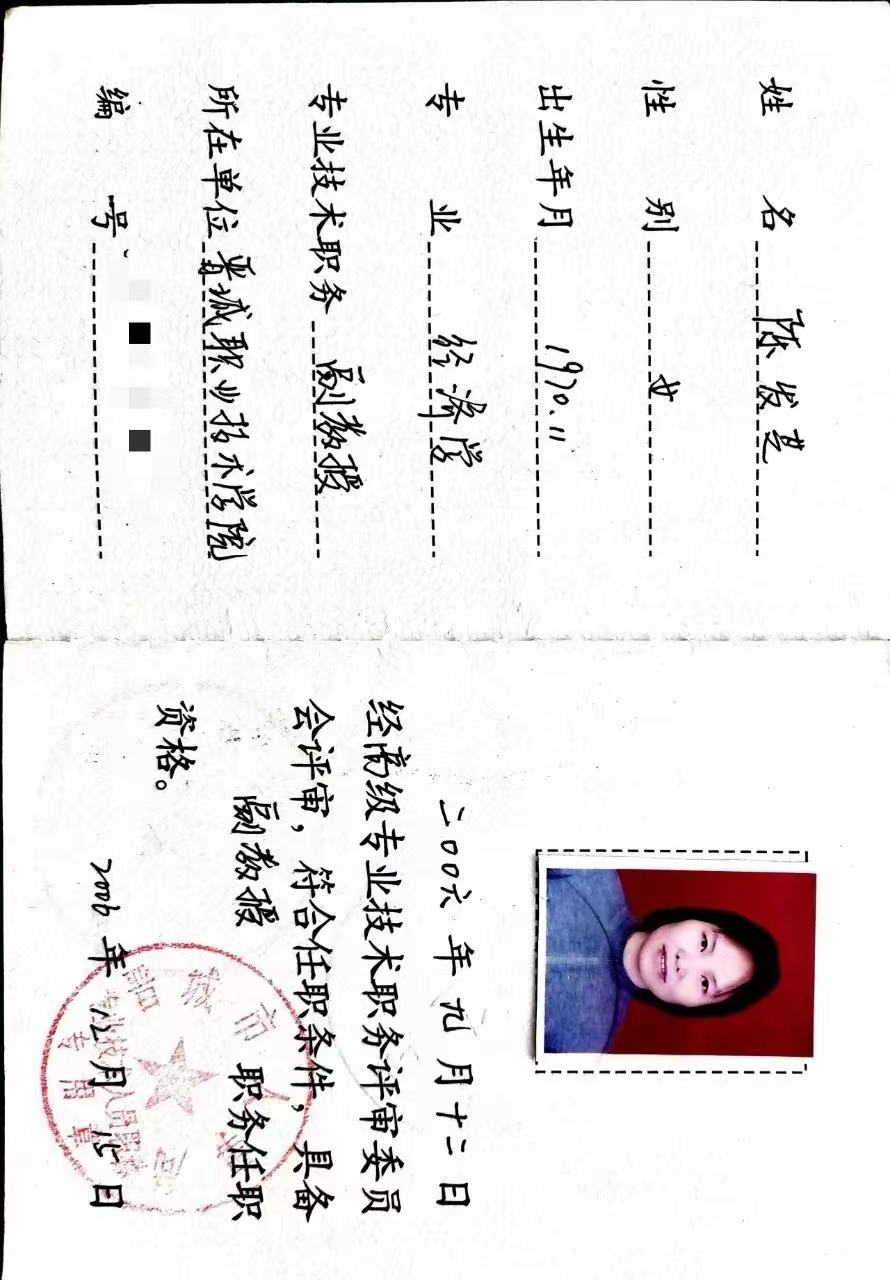 姓 名 陈发芝
性 别 女
出生年月 1970.11
专 业 经济学
专业技术职务 副教授
所在单位 晋城职业技术学院
编 号
二〇〇六年九月十二日
经高级专业技术职务评审委员
会评审，符合任职条件，具备
副教授 职务任职
资格。
2006年12月15日
专用章